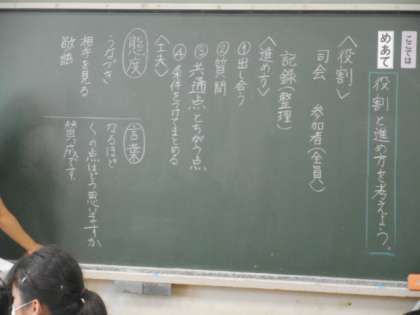 ここでは
めあて
役割と進め方を考えよう。
〈役割〉
司会 参加者(全員)
記録(整理)
〈進め方〉
①出し合う
②質問
③共通点とちがう点
④条件をつけてまとめる
〈工夫〉
態度
うなづき
相手を見る
敬語
言葉
なるほど
くの点はどう思いますか
賛成です。